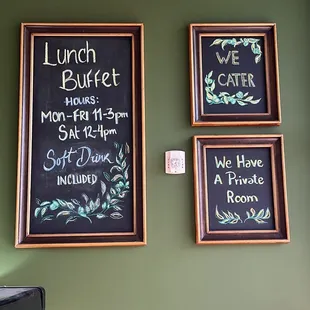 Lunch
Buffet
HOURS:
MON-FRI 11-3pm
SAT 12-4pm
Soft Drink
INCLUDED
WE
CATER
We Have
A Private
Room